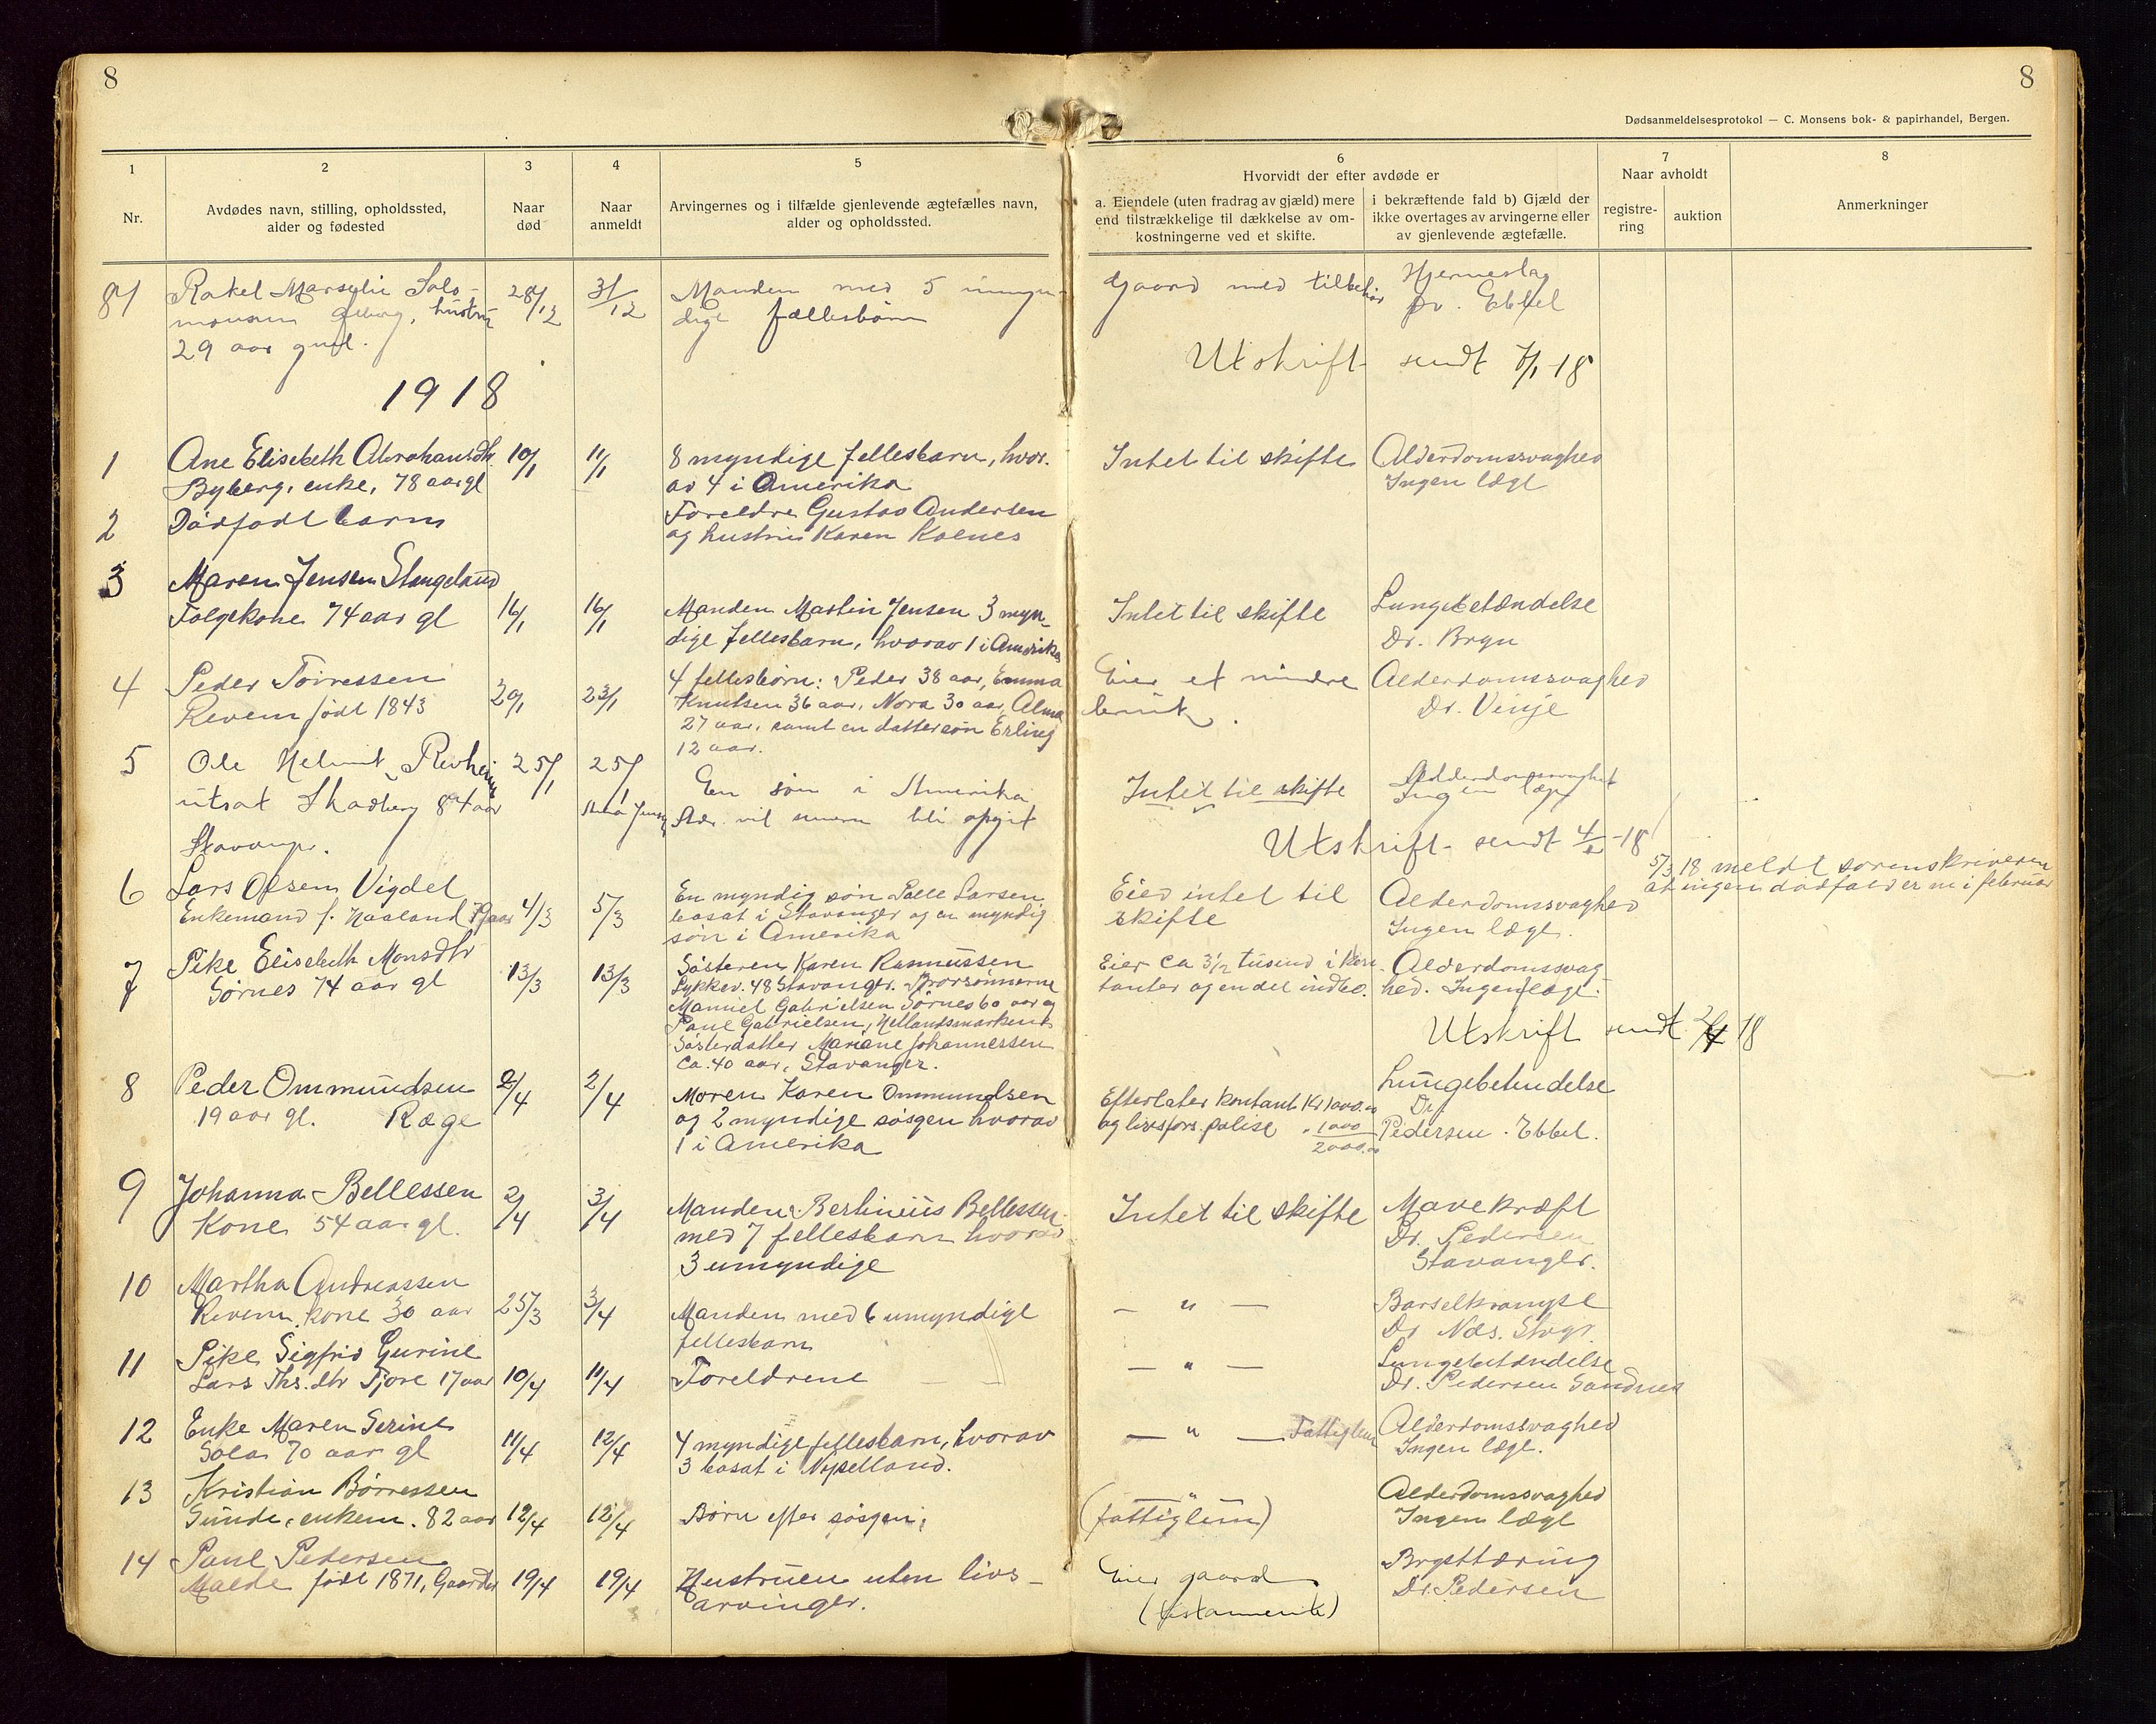 8
8
Dødsanmeldelsesprotokol — C. Monsens bok- & papirhandel, Bergen.
1
2
3
4
5
6
7
8
Nr.
Avdødes navn, stilling, opholdssted,
alder og fødested
Naar
død
Naar
anmeldt
Arvingernes og i tilfælde gjenlevende ægtefælles navn,
alder og opholdssted.
Hvorvidt der efter avdøde er
a. Eiendele (uten fradrag av gjæld) mere
end tilstrækkelige til dækkelse av om-
kostningerne ved et skifte.
i bekræftende fald b) Gjæld der
ikke overtages av arvingerne eller
av gjenlevende ægtefælle.
Naar avholdt
registre-
ring
auktion
Anmerkninger
Rakel Salo-
monsen hustru
29 aar gml.
28/12
31/12
Manden med 5 umyn-
dige fællesbørn
Gjaard med tilbehør
Hjerneslag
Dr. Ebbel
Utskrift sendt 7/1-18
1918
1
Ane Elisebeth Abrahamsdtr.
Byberg, enke, 78 aar gl
10/1
11/1
8 myndige fellesbarn, hvor-
av 4 i Amerika
Intet til skifte
Alderdomssvaghed
Ingen læge
2
Dødfødt barn
Foreldre Gustav Andersen
og hustru Karen Kolnes
3
Maren Jensen Stangeland
Folgekone 74 aar gl
16/1
16/1
Manden Martin Jensen 3 myn-
dige fellesbarn, hvorav 1 i Amerika
Intet til skifte
Lungebetændelse
Dr. Bryn
4
Peder Tørressen
Revem født 1843
20/1
23/1
4 fellesbørn: Peder 38 aar, Emma
Knutsen 36 aar, Nora 30 aar, Alma
27 aar, samt en dattersøn Erling
12 aar.
Eier et mindre
bruk.
Alderdomssvaghed
Dr. Vinje
5
Ole Helmit Revheim
utsat Skadberg 84 aar
Stavanger.
25/1
25/1
En søn i Amerika
vil bli opgit
Intet til skifte
Alderdomssvaghet
Ingen læge
Utskrift sendt 4/2-18
5/3 18 meldt sorenskriveren
at ingen dødsfald er m i februar
6
Lars Olsen Vigdel
Enkemand f. Haaland 79 aar
4/3
5/3
En myndig søn Salle Larsen
bosat i Stavanger og en myndig
søn i Amerika
Eied intet til
skifte
Alderdomssvaghed
Ingen læge.
7
Pike Elisebeth Monsdtr
Sørnes 74 aar gl
13/3
13/3
Søsteren Karen Rasmussen
Lykkev. 48 Stavanger. Brorsønnerne
Manuel Gabrielsen Sørnes 60 aar og
Paul Gabrielsen, Hetlandsmarken
Søsterdatter Mariane Johannessen
ca. 40 aar, Stavanger.
Eier ca 3½ tusind i kon-
tanter og en del indbo.
Alderdomssvag-
hed. Ingen læge.
Utskrift sendt 2/4 18
8
Peder Ommundsen
19 aar gl. Ræge
2/4
2/4
Moren Karen Ommundsen
og 2 myndige søsgen hvorav
1 i Amerika
Efterlater kontant Kr 1000.00
og livsfors. polise " 1000
2000.00
Lungebetendelse
Dr.
Pedersen. Ebbel.
9
Johanna Bellessen
Kone 54 aar gl.
2/4
3/4
Manden Bertinius Bellessen
med 7 fellesbarn hvorav
3 umyndige
Intet til skifte
Mavekræft
Dr. Pedersen
Stavanger.
10
Martha Andreassen
Revem, kone 30 aar
25/3
3/4
Manden med 6 umyndige
fellesbarn
— " —
Barselkrampe
Dr Næs. Stvgr.
11
Pike Sigfrid Gurine
Lars Ths. dtr Tjore 17 aar
10/4
11/4
Foreldrene
— " —
Lungebetændelse
Dr. Pedersen Sandnes
12
Enke Maren Serine
Sola 70 aar gl
11/4
12/4
4 myndige fellesbarn, hvorav
3 bosat i Nyselland.
— " — Fattiglem
Alderdomssvaghed
Ingen læge.
13
Kristian Børressen
Sunde, enkem. 82 aar
12/4
12/4
Børn efter søsgen;
— " —
(fattiglem)
Alderdomssvaghed
Ingen lægl
14
Paul Pedersen
Malde født 1871, Gaardbr
19/4
19/4
Hustruen uten livs-
arvinger.
Eier gaard
(testamente)
Brysttæring
Dr. Pedersen